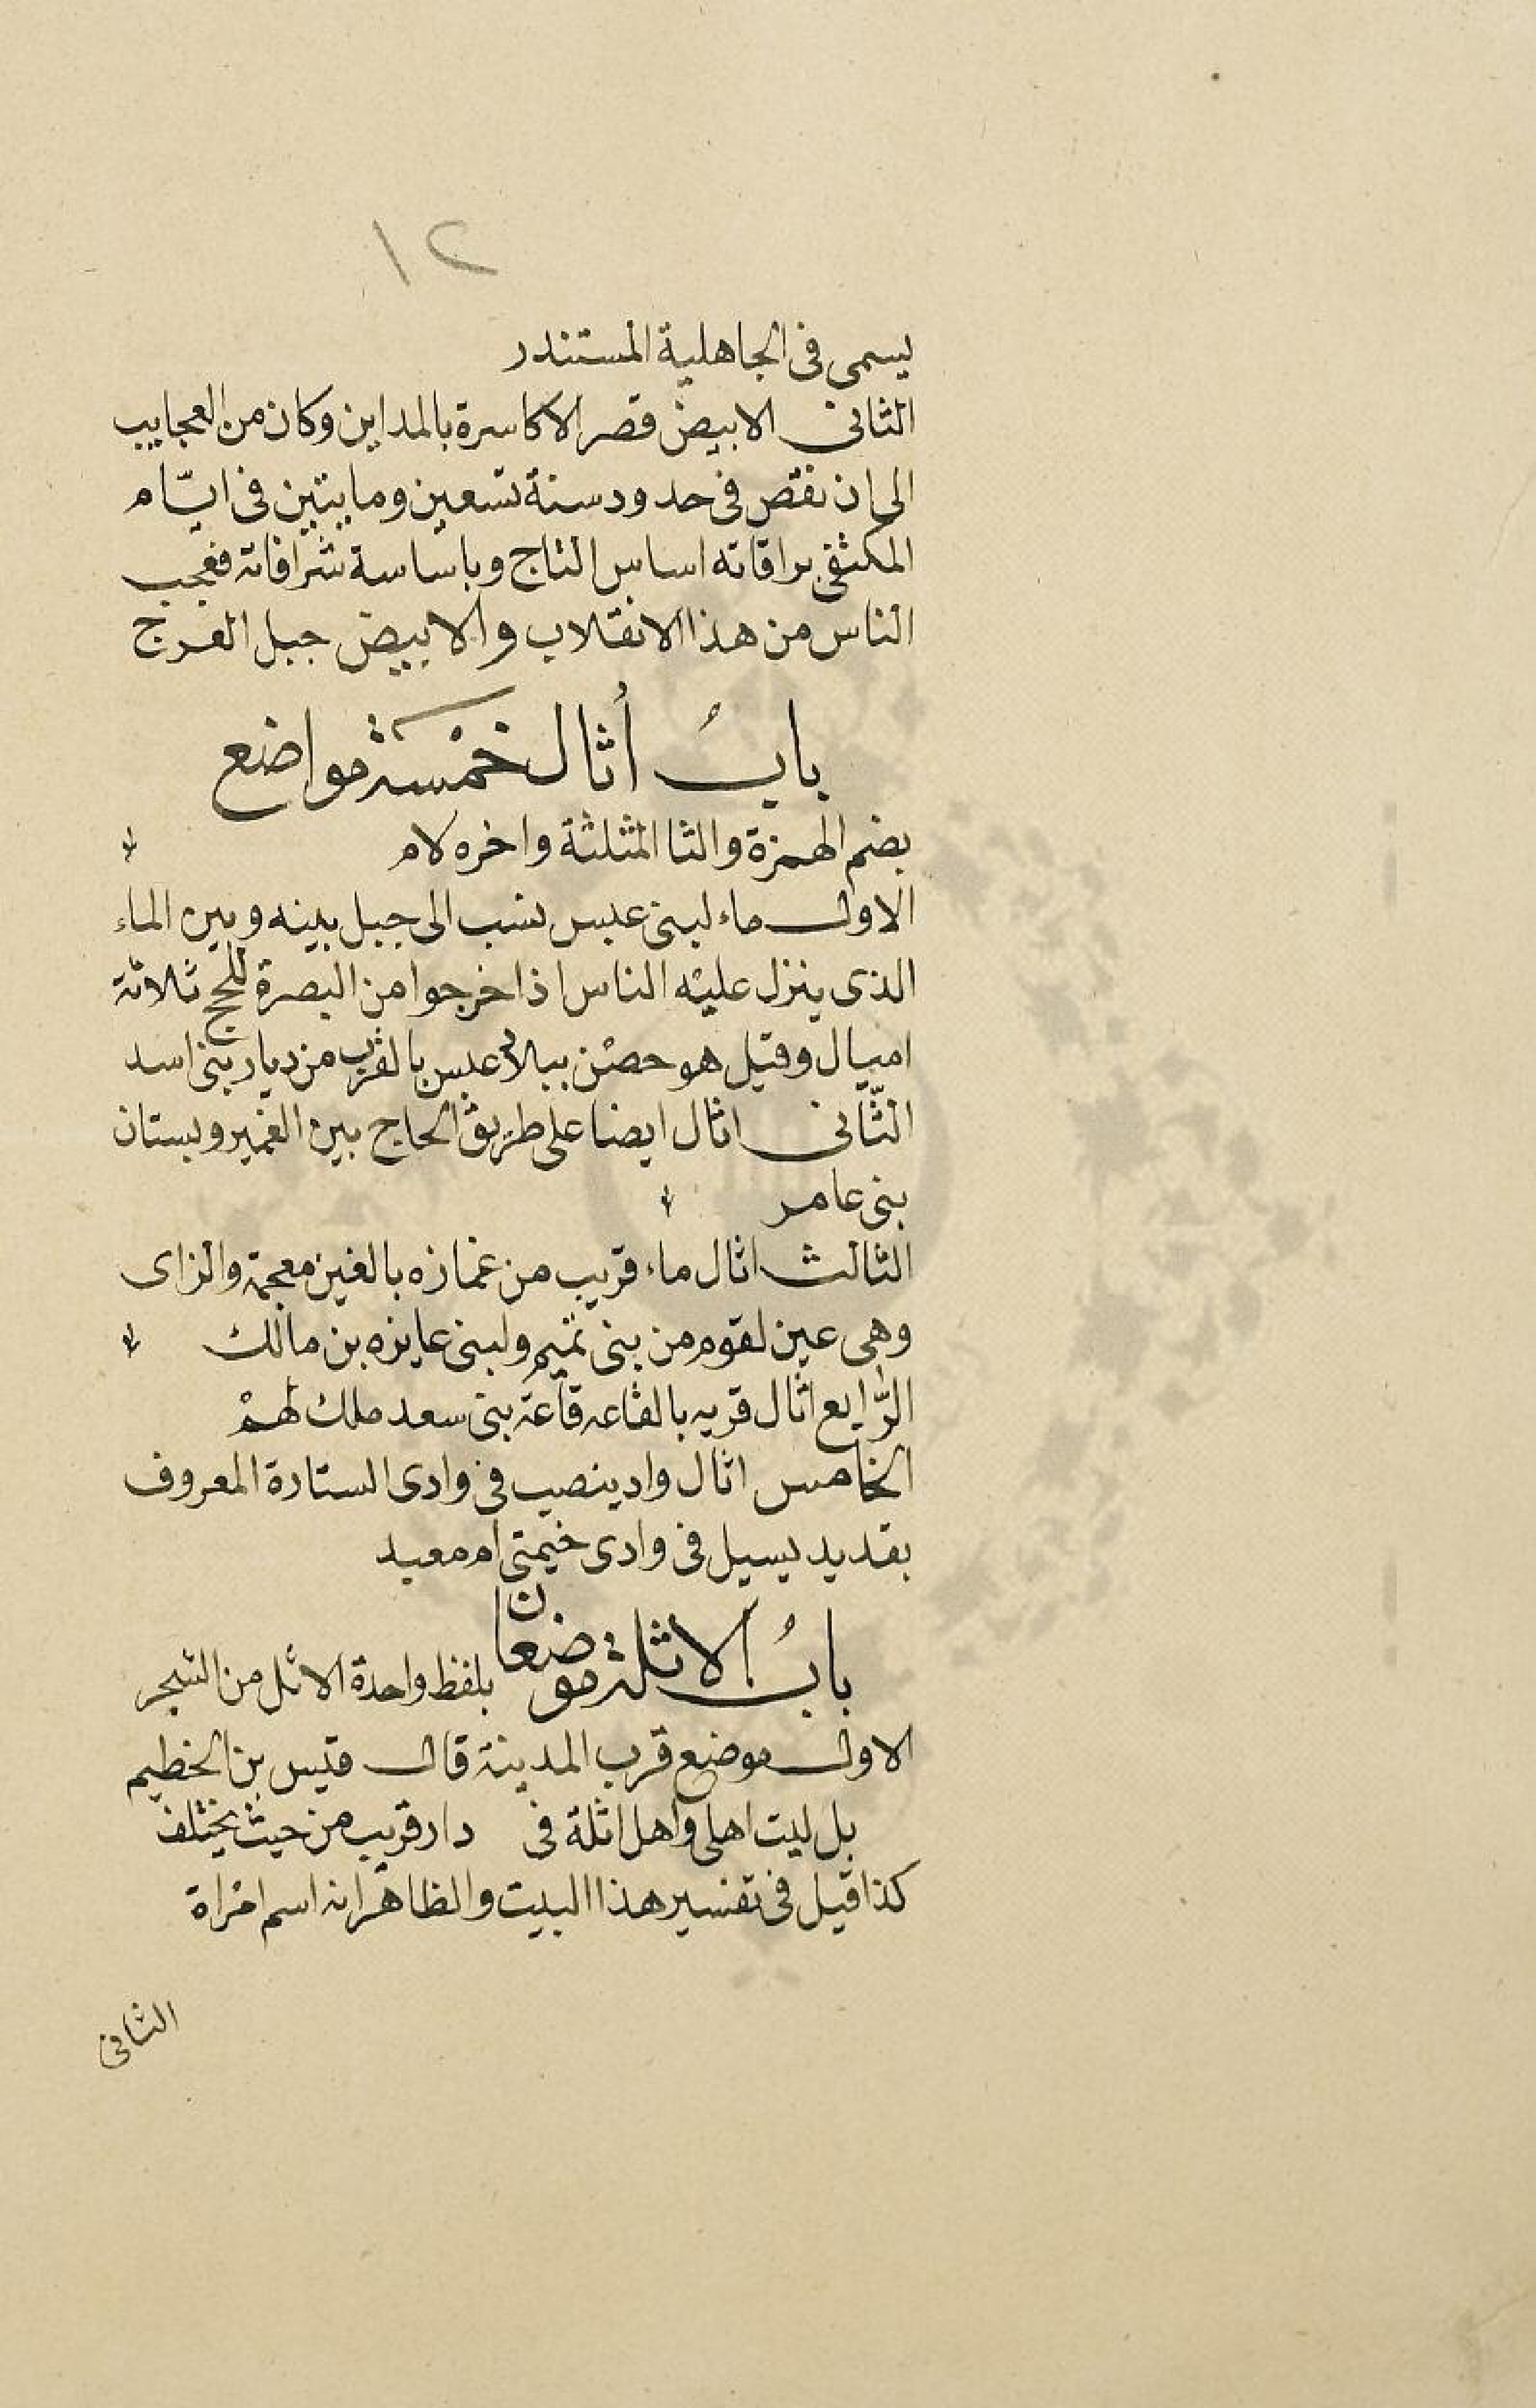 ١٢
يسمى فى الجاهلية المستندر
الثانى الابيض قصر الاكاسرة بالمداين وكان من العجايب
الى ان نقض فى حدود سنة تسعين ومايتين فى ايّام
المكتفى براقاته اساس التاج وباساسة شرافاته فعجب
الناس من هذا الانقلاب والابيض جبل العرج
بابُ أثال خمْسة مواضع
بضم الهمزة والثا المثلثة واخره لام
الاول ماء لبنى عبس نسب الى جبل بينه وبين الماء
الذى ينزل عليْه الناس اذا خرجوا من البصرة للحج ثلاثة
اميال وقيل هو حصْن ببلاد عبس بالقرب من ديار بنى اسد
الثّانى اثال ايضا على طريق الحاج بين الغمير وبستان
بنى عامر
الثالث اثال ماء قريب من غمازه بالغين معجمة والزاى
وهى عين لقوم من بنى تميم ولبنى عايزه بن مالك
الرّابع اثال قريه بالقاعه قاعة بنى سعد ملك لهمْ
الخامس اثال واد ينصب فى وادى الستارة المعروف
بقديد يسيل فى وادى خيمتى ام معبد
بابُ الاثلة موضعان بلفظ واحدة الاثل من الشجر
الاول موضع قرب المدينة قال قيس بن الخطيم
بل ليت اهلى واهل اثلة فى دار قريب من حيث يختلف
كذا قيل فى تفسير هذا البيت والظاهر انه اسم امْراة
الثانى